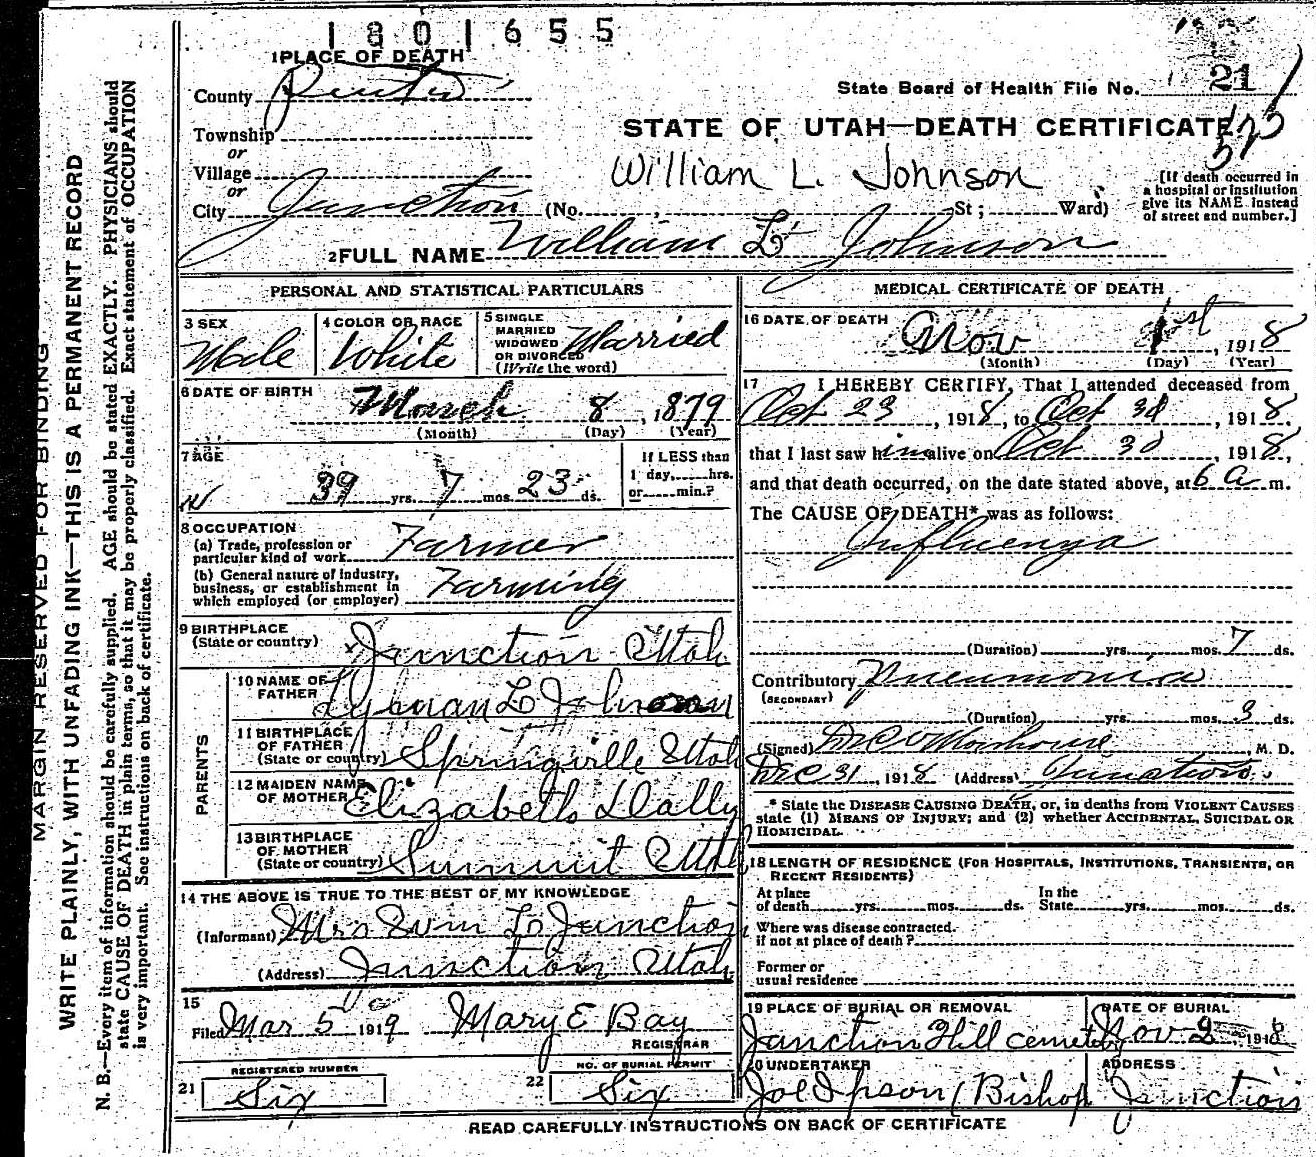 1801655
1 PLACE OF DEATH
County
State Board of Health File No. 21
Township
or
Village
or
City Junction (No. , St ; Ward)
STATE OF UTAH—DEATH CERTIFICATE
William L. Johnson
[If death occurred in
a hospital or institution
give its NAME instead
of street and number.]
2 FULL NAME William L Johnson
PERSONAL AND STATISTICAL PARTICULARS
3 SEX
Male
4 COLOR OR RACE
White
5 SINGLE
MARRIED
WIDOWED
OR DIVORCED
(Write the word)
Married
6 DATE OF BIRTH
March 8, 1879
(Month) (Day) (Year)
7 AGE
39 yrs. 7 mos. 23 ds.
If LESS than
1 day, hrs.
or min.?
8 OCCUPATION
(a) Trade, profession or
particular kind of work Farmer
(b) General nature of industry,
business, or establishment in
which employed (or employer) Farming
9 BIRTHPLACE
(State or country) Junction Utah
PARENTS
10 NAME OF
FATHER L Johnson
11 BIRTHPLACE
OF FATHER
(State or country) Springville Utah
12 MAIDEN NAME
OF MOTHER Elizabeth Dally
13 BIRTHPLACE
OF MOTHER
(State or country) Summit Utah
14 THE ABOVE IS TRUE TO THE BEST OF MY KNOWLEDGE
(Informant) Mrs Wm L Junction
(Address) Junction Utah
15
Filed Mar 5 1919 Mary E Bay
REGISTRAR
REGISTERED NUMBER
21 Six
NO. OF BURIAL PERMIT
22 Six
MEDICAL CERTIFICATE OF DEATH
16 DATE OF DEATH
Nov 1st, 1918
(Month) (Day) (Year)
17 I HEREBY CERTIFY, That I attended deceased from
Oct 23, 1918, to Oct 30, 1918,
that I last saw him alive on Oct 30, 1918,
and that death occurred, on the date stated above, at 6 a m.
The CAUSE OF DEATH* was as follows:
Influenza
(Duration) yrs. mos. 7 ds.
Contributory Pneumonia
(SECONDARY)
(Duration) yrs. mos. 3 ds.
(Signed) , M. D.
Dec 31, 1918 (Address) Junction
* State the DISEASE CAUSING DEATH, or, in deaths from VIOLENT CAUSES
state (1) MEANS OF INJURY; and (2) whether ACCIDENTAL, SUICIDAL OR
HOMICIDAL.
18 LENGTH OF RESIDENCE (FOR HOSPITALS, INSTITUTIONS, TRANSIENTS, OR
RECENT RESIDENTS)
At place
of death yrs. mos. ds.
In the
State yrs. mos. ds.
Where was disease contracted,
if not at place of death?
Former or
usual residence
19 PLACE OF BURIAL OR REMOVAL
Junction Hill cemetery
DATE OF BURIAL
Nov 2, 1918
20 UNDERTAKER
Joe Ipson (Bishop
ADDRESS
Junction
READ CAREFULLY INSTRUCTIONS ON BACK OF CERTIFICATE
MARGIN RESERVED FOR BINDING
WRITE PLAINLY, WITH UNFADING INK—THIS IS A PERMANENT RECORD
N. B.—Every item of information should be carefully supplied. AGE should be stated EXACTLY. PHYSICIANS should
state CAUSE OF DEATH in plain terms, so that it may be properly classified. Exact statement of OCCUPATION
is very important. See instructions on back of certificate.